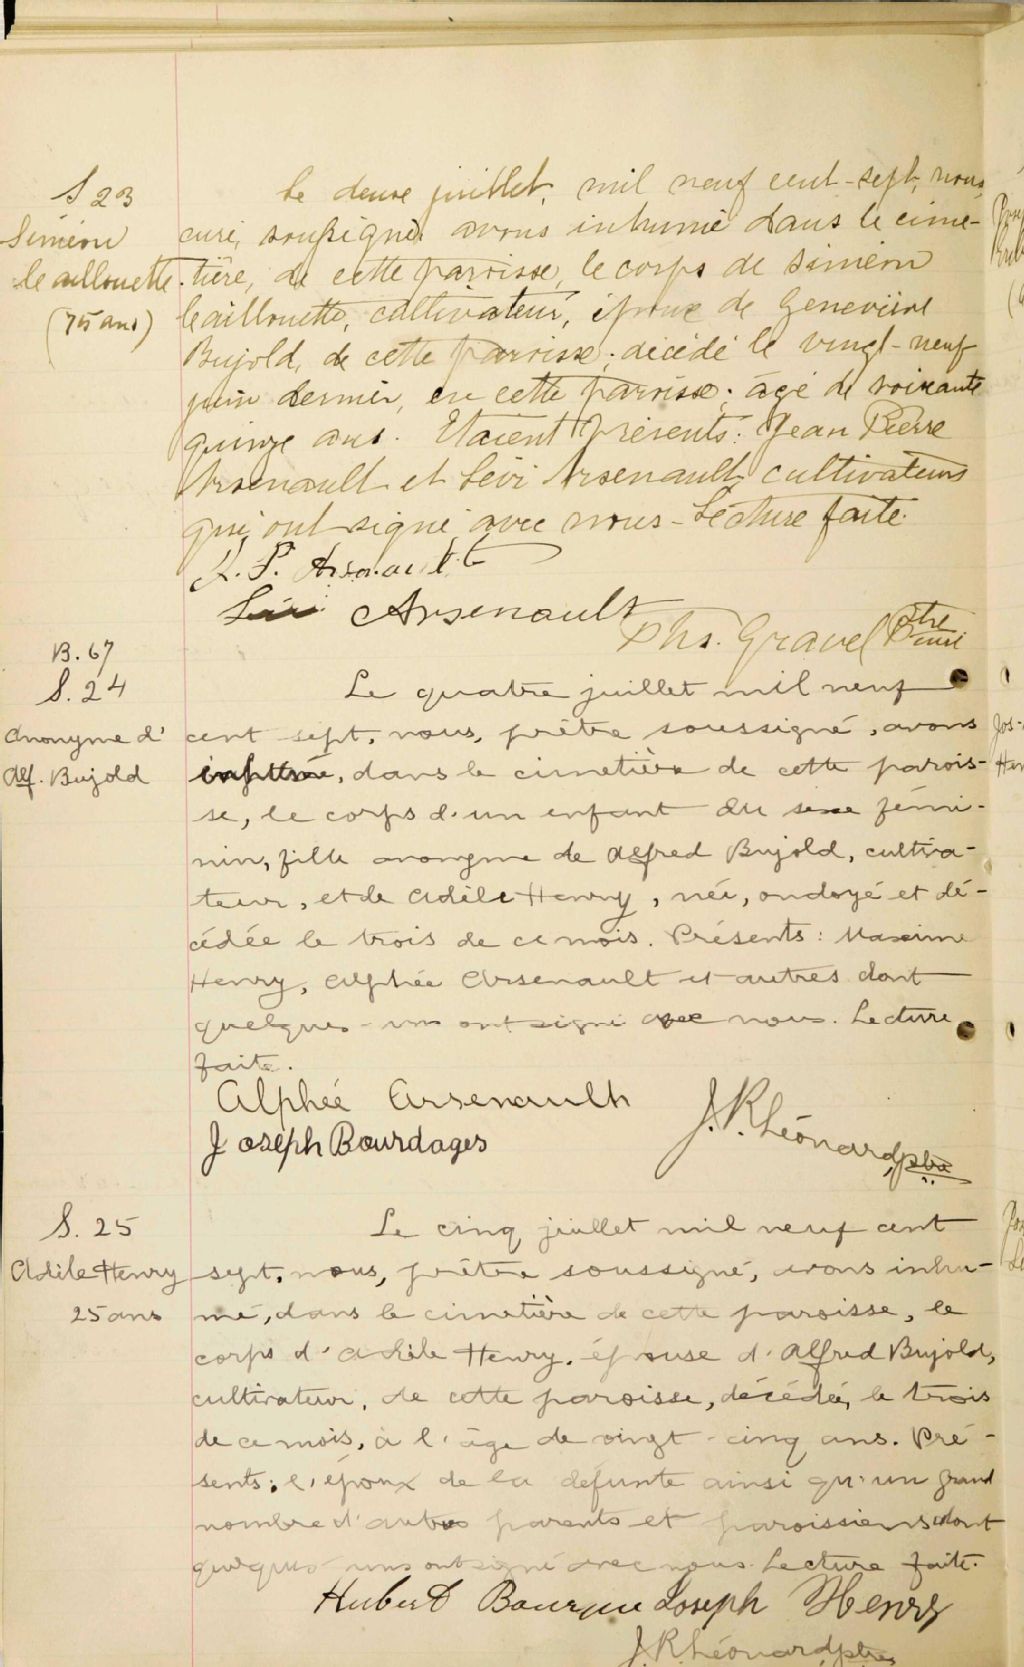 S 23
Siméon
Leaillouette
(75 ans)
Le deuxe juillet, mil neuf cent-sept, nous,
curé, soussigné, avons inhumé dans le cime-
tière, de cette paroisse, le corps de Siméon
Leaillouette, cultivateur, époux de Geneviève
Bujold, de cette paroisse; décédé le vingt-neuf
juin dernier, en cette paroisse; âgé de soixante
quinze ans. Etaient présents: Jean Pierre
Arsenault et Lévi Arsenault, cultivateurs
qui ont signé avec nous - Lecture faite.
J. P. Arsenault
Lévi Arsenault
Phs. Gravel Ptre
curé
B. 67
S. 24
Anonyme d'
Alf. Bujold
Le quatre juillet mil neuf
cent sept, nous, prêtre soussigné, avons
inhumé, dans le cimetière de cette parois-
se, le corps d'un enfant du sexe fémi-
nin, fille anonyme de Alfred Bujold, cultiva-
teur, et de Adèle Henry, née, ondoyé et dé-
cédée le trois de ce mois. Présents: Maxime
Henry, Alphée Arsenault et autres dont
quelques-uns ont signé avec nous. Lecture
faite.
Alphée Arsenault
Joseph Bourdages
J. R. Léonard, ptre
S. 25
Adèle Henry
25 ans
Le cinq juillet mil neuf cent
sept, nous, prêtre soussigné, avons inhu-
mé, dans le cimetière de cette paroisse, le
corps d'Adèle Henry, épouse d'Alfred Bujold,
cultivateur, de cette paroisse, décédée, le trois
de ce mois, à l'âge de vingt-cinq ans. Pré-
sents: l'époux de la défunte ainsi qu'un grand
nombre d'autres parents et paroissiens dont
quelques-uns ont signé avec nous. Lecture faite.
Hubert Bourque Joseph Henry
J. R. Léonard, ptre